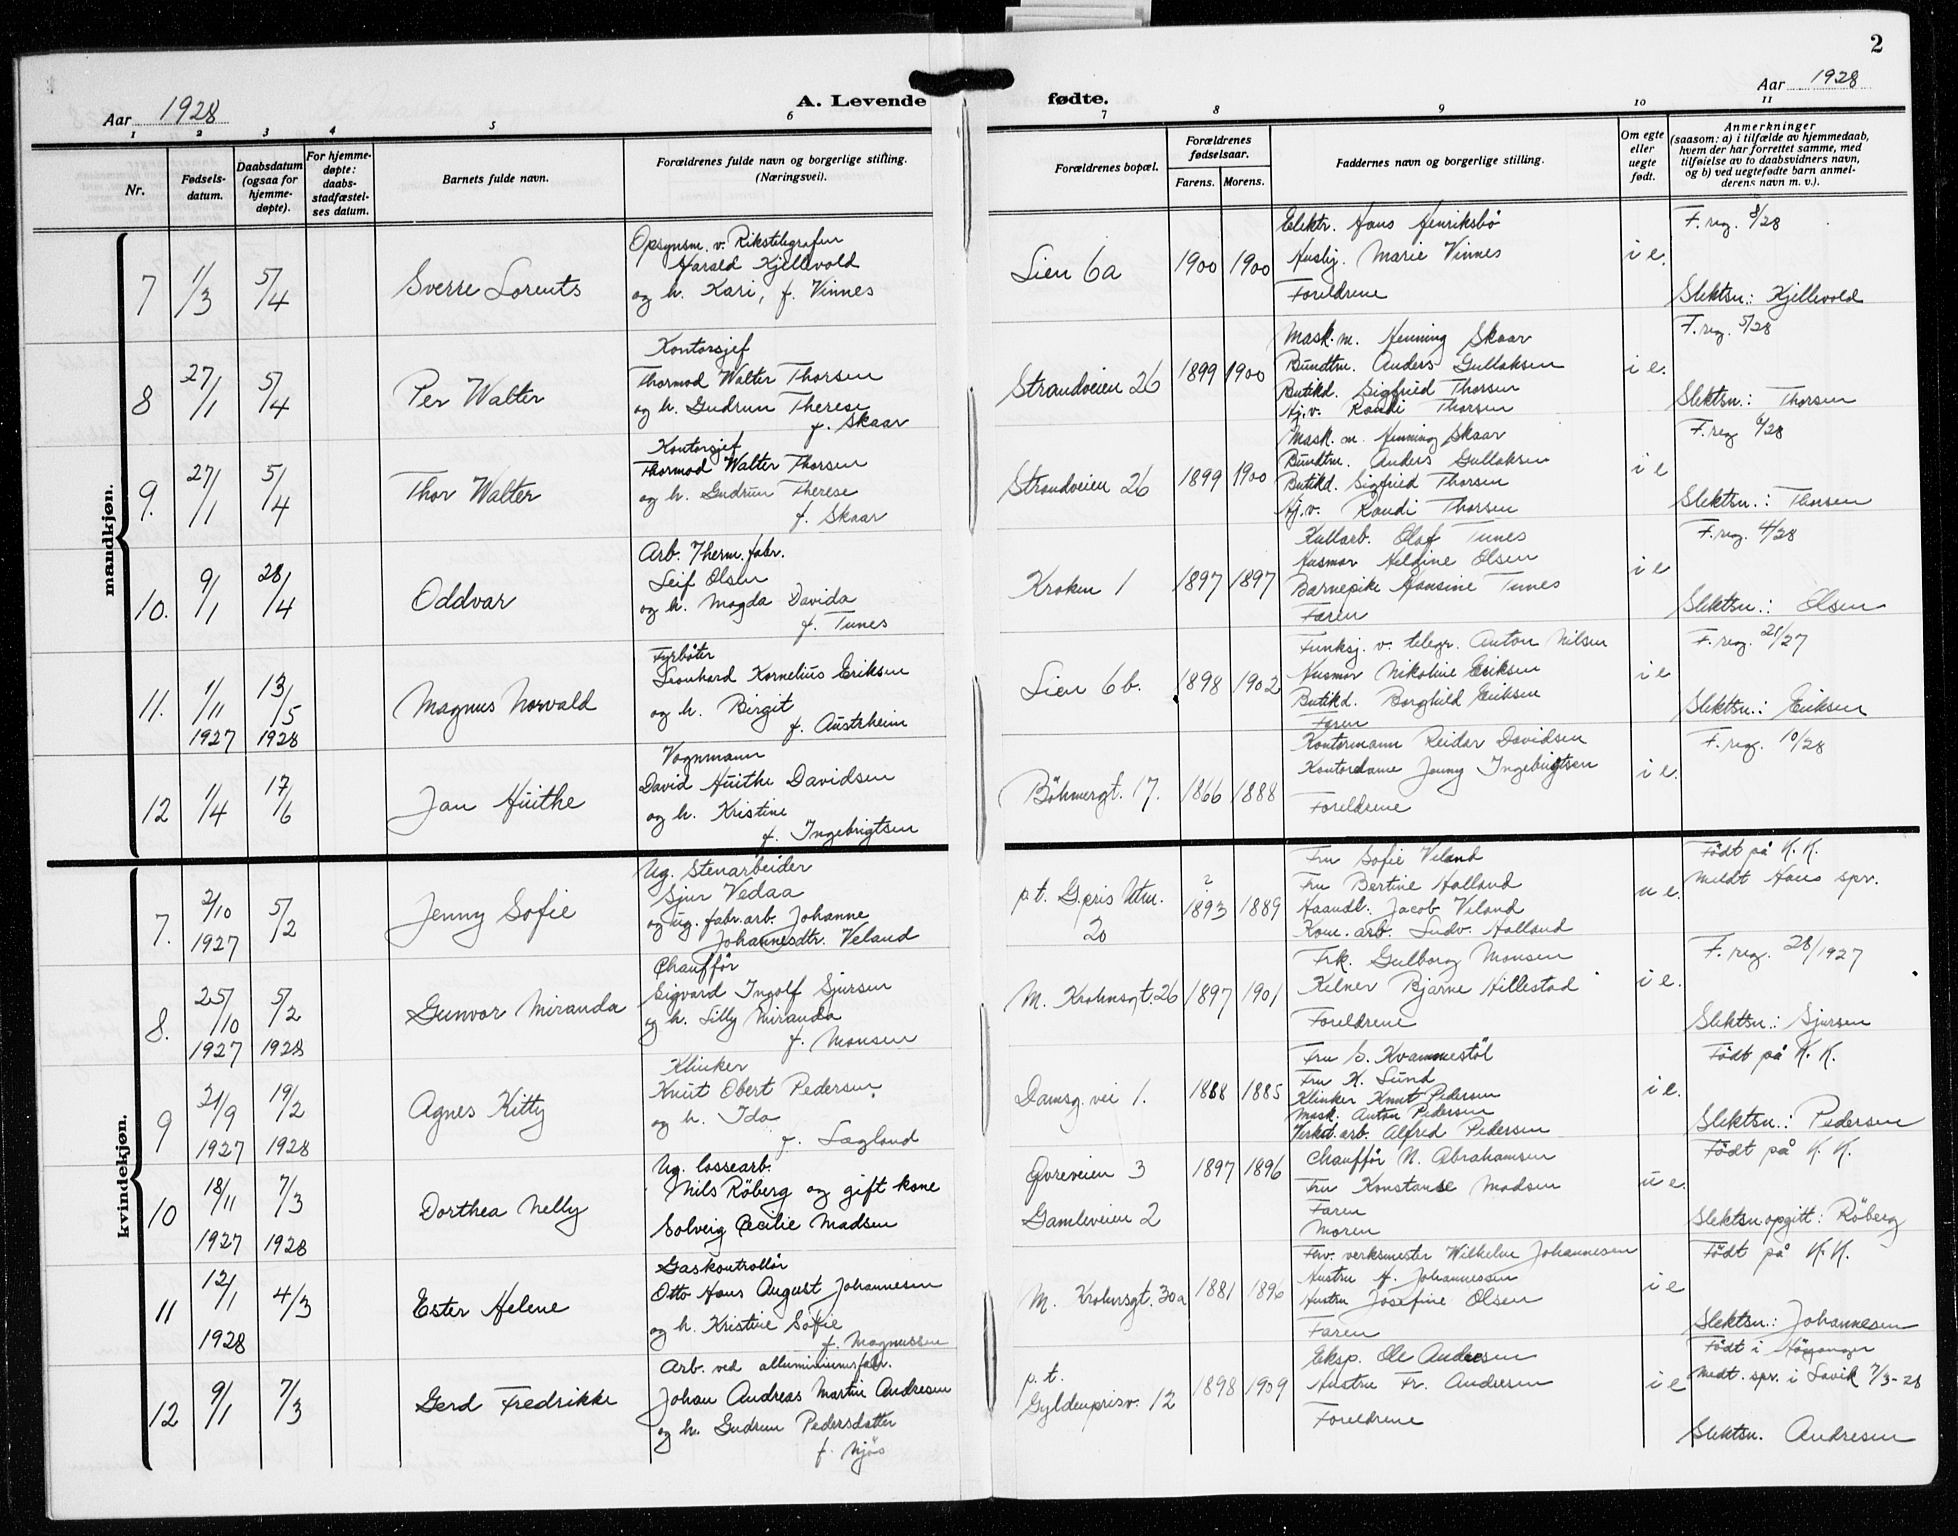 2
Aar 1928
A. Levende fødte.
Aar 1928
1 2 3 4 5 6 7 8 9 10 11
Nr.
Fødsels-
datum.
Daabsdatum
(ogsaa for
hjemme-
døpte).
For hjemme-
døpte:
daabs-
stadfæstel-
ses datum.
Barnets fulde navn.
Forældrenes fulde navn og borgerlige stilling.
(Næringsvei).
Forældrenes bopæl.
Forældrenes
fødselsaar.
Farens. Morens.
Faddernes navn og borgerlige stilling.
Om egte
eller
uegte
født.
Anmerkninger
(saasom: a) i tilfælde av hjemmedaab,
hvem der har forrettet samme, med
tilføielse av to daabsvidners navn,
og b) ved uegtefødte barn anmel-
derens navn m. v.).
mandkjøn.
7 1/3 5/4 Sverre Lorents
Opsynsm. v. Rikstelegrafen
Harald Kjellevold
og h. Kari, f. Vinnes
Lien 6a 1900 1900
Elektr. Hans Henriksbø
Husbj. Marie Vinnes
Foreldrene
i e.
F. reg. 8/28
Slektsn.: Kjellevold
8 27/1 5/4 Per Walter
Kontorsjef
Thormod Walter Thorsen
og h. Gudrun Therese
f. Skaar
Strandveien 26 1899 1900
Mask.m. Henning Skaar
Bundtm. Anders Gullaksen
Butikd. Sigfried Thorsen
Hj.v. Randi Thorsen
i e.
F. reg. 5/28
Slektsn.: Thorsen
9. 27/1 5/4 Thor Walter
Kontorsjef
Thormod Walter Thorsen
og h. Gudrun Therese
f. Skaar
Strandveien 26 1899 1900
Mask. m. Henning Skaar
Bundtm. Anders Gullaksen
Butikd. Sigfried Thorsen
Hj.v. Randi Thorsen
i e
F. reg 6/28
Slektsn.: Thorsen
10. 9/1 28/4 Oddvar
Arb. Therm. fabr.
Leif Olsen
og h. Magda Davida
f. Tunes
Kroken 1 1897 1897
Kullarb. Olaf Tunes
Husmor Heldine Olsen
Barnepike Hansine Tunes
Faren
i e
F. reg. 4/28
Slektsn.: Olsen
11. 1/11 1927 13/5 1928 Magnus Norvald
Fyrbøter
Leonhard Kornelius Eriksen
og h. Birgit
f. Austrheim
Lien 6 b. 1898 1902
Funksj. v. telegr. Anton Nilsen
Husmor Nikoline Eriksen
Butikd. Borghild Eriksen
Faren
i e
F. reg. 21/27
Slektsn.: Eriksen
12 1/4 17/6 Jan Huithe
Vognmann
David Huithe Davidsen
og h. Kristine
f. Ingebrigtsen
Bøhmergt. 17. 1866 1888
Kontormann Reidar Davidsen
Kontordame Jenny Ingebrigtsen
Foreldrene
i e.
F. reg. 10/28
kvindekjøn.
7. 2/10 1927 5/2 Jenny Sofie
Ug. Stenarbeider
Sjur Vedaa
og ug. fabr. arb. Johanne
Johannesdtr. Veland
p.t. G.pris Utm.
20
? 1893 1889
Fru Sofie Veland
Fru Bertine Halland
Haandl. Jacob Veland
Kom. arb. Ludv. Halland
u e.
Født på K. K.
meldt Haus spr.
8. 25/10 1927 5/2 1928 Gunvor Miranda
Chauffør
Sigvard Ingolf Sjursen
og h. Lilly Miranda
f. Monsen
M. Krohnsgt. 26 1897 1901
Frk. Gulborg Monsen
Kelner Bjarne Hillestad
Foreldrene
i e.
F. reg. 28/1927
Slektsn.: Sjursen
9 21/9 1927 19/2 1928 Agnes Kitty
Klinker
Knut Obert Pedersen
og h. Ida
f. Lagland
Damsg. vei 1. 1888 1885
Fru S. Kvammestøl
Fru K. Lund
Klinker Knut Pedersen
Mask. Anton Pedersen
Verkst. arb. Alfred Pedersen
i e.
Født på K. K.
Slektsn.: Pedersen
10 18/11 1927 7/3 1928 Dorthea Nelly
Ug. lossearb.
Nils Røberg og gift kone
Solveig Cecilie Madsen
Øvreveien 3
Gamleveien 2
1897 1896
Chauffør N. Abrahamsen
Fru Konstanse Madsen
Faren
Moren
u e.
Født på K. K.
Slektsn opgitt: Røberg
11 12/1 1928 4/3 Ester Helene
Gaskontrollør
Otto Hans August Johannesen
og h. Kristine Sofie
f. Magnussen
M. Krohnsgt. 30a 1881 1896
Fhv. verksmester Wilhelm Johannesen
Hustru H. Johannessen
Hustru Josefine Olsen
Faren
i e
Født på K. K.
Slektsn.: Johannesen
12 9/1 7/3 Gerd Fredrikke
Arb. ved alluminiumsfabr.
Johan Andreas Martin Andresen
og h. Gudrun Pedersdatter
f. Njøs
p. t.
Gyldenprisv. 12 1898 1909
Eksp. Ole Andresen
Hustru Fr. Andresen
Foreldrene
i e
Født i Høyanger
Medt. spr. i Lavik 7/3-28
Slektsn. Andresen